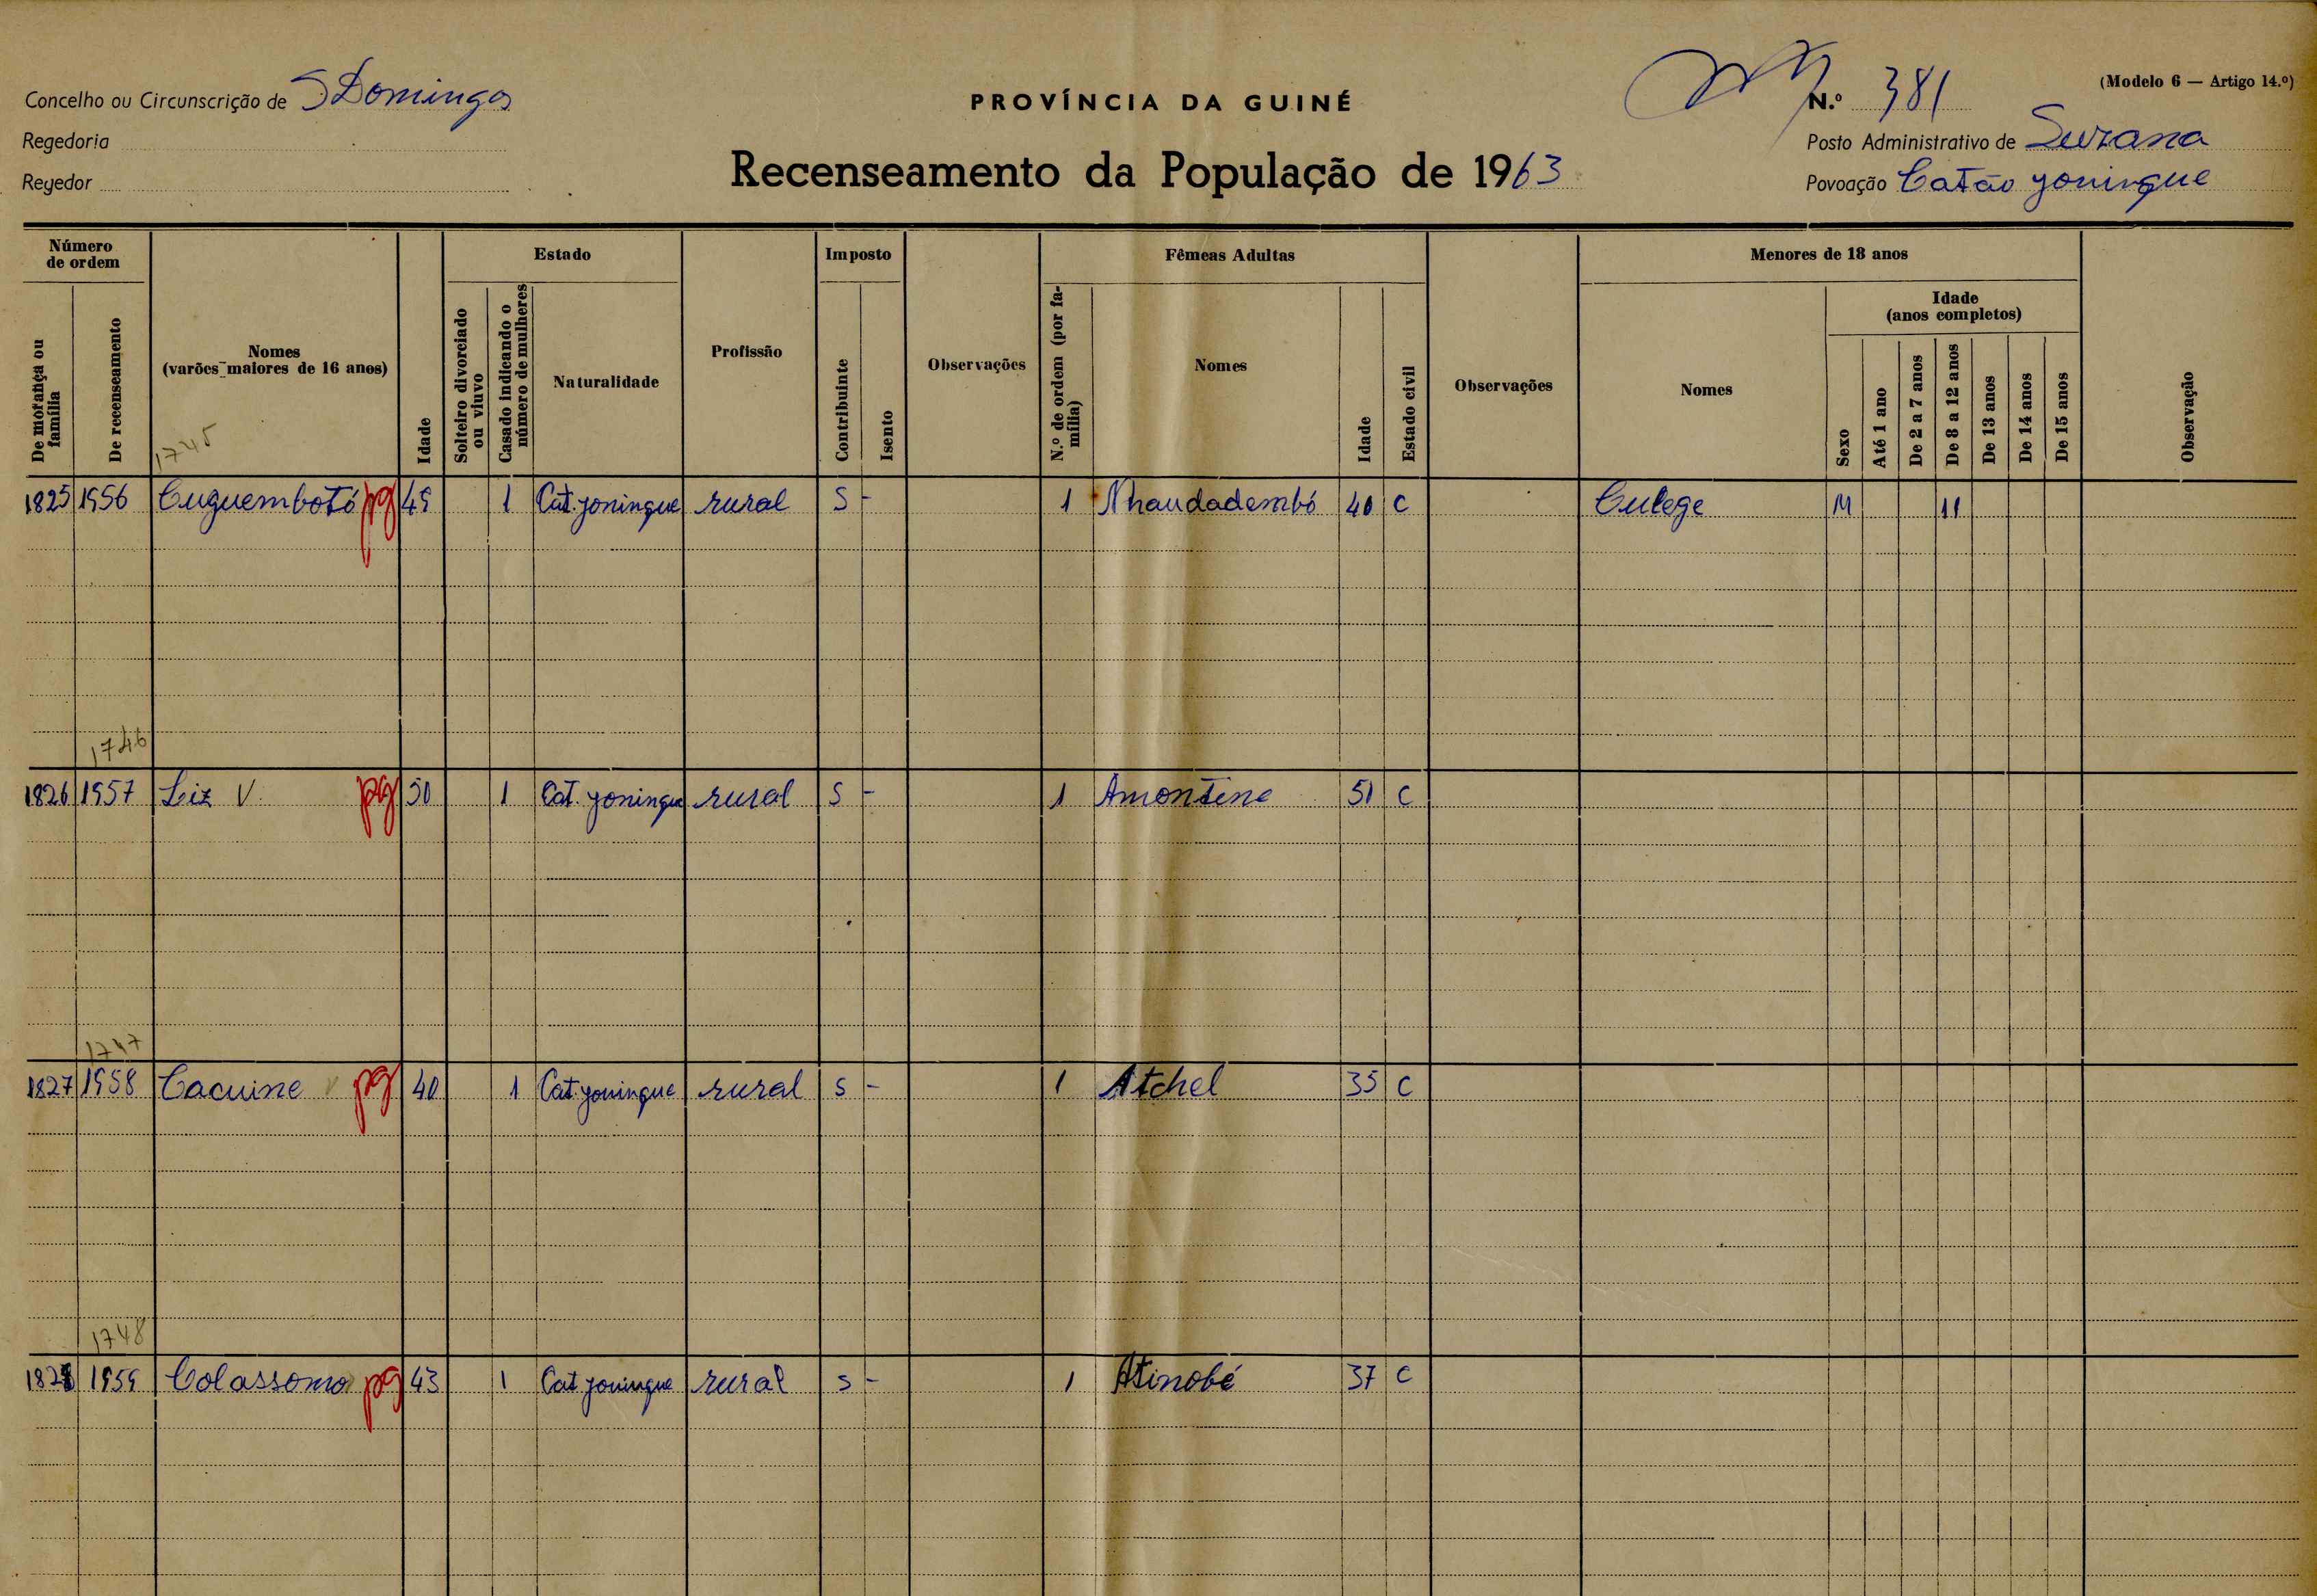 Concelho ou Circunscrição de S Domingos
Regedoria
Regedor
PROVÍNCIA DA GUINÉ
Recenseamento da População de 1963
(Modelo 6 — Artigo 14.º)
N.º 381
Posto Administrativo de Suzana
Povoação Catão yoningue
Número de ordem
De morança ou família
De recenseamento
Nomes
(varões maiores de 16 anos)
Idade
Estado
Solteiro divorciado ou viuvo
Casado indicando o número de mulheres
Naturalidade
Profissão
Imposto
Contribuinte
Isento
Observações
Fêmeas Adultas
N.º de ordem (por família)
Nomes
Idade
Estado civil
Observações
Menores de 18 anos
Nomes
Idade
(anos completos)
Sexo
Até 1 ano
De 2 a 7 anos
De 8 a 12 anos
De 13 anos
De 14 anos
De 15 anos
Observação
1745
1825 1956 Cuguembotó pg 49 1 Cat. yoningue rural S - 1 Nhaudadembó 40 C Culege M 11
1746
1826 1957 Leiz V. pg 50 1 Cat. yoningue rural S - 1 Amontene 51 C
1747
1827 1958 Cacuine v pg 40 1 Cat. yoningue rural S - 1 Atchel 35 C
1748
1828 1959 Colassomo pg 43 1 Cat yoningue rural S - 1 Atinobé 37 C